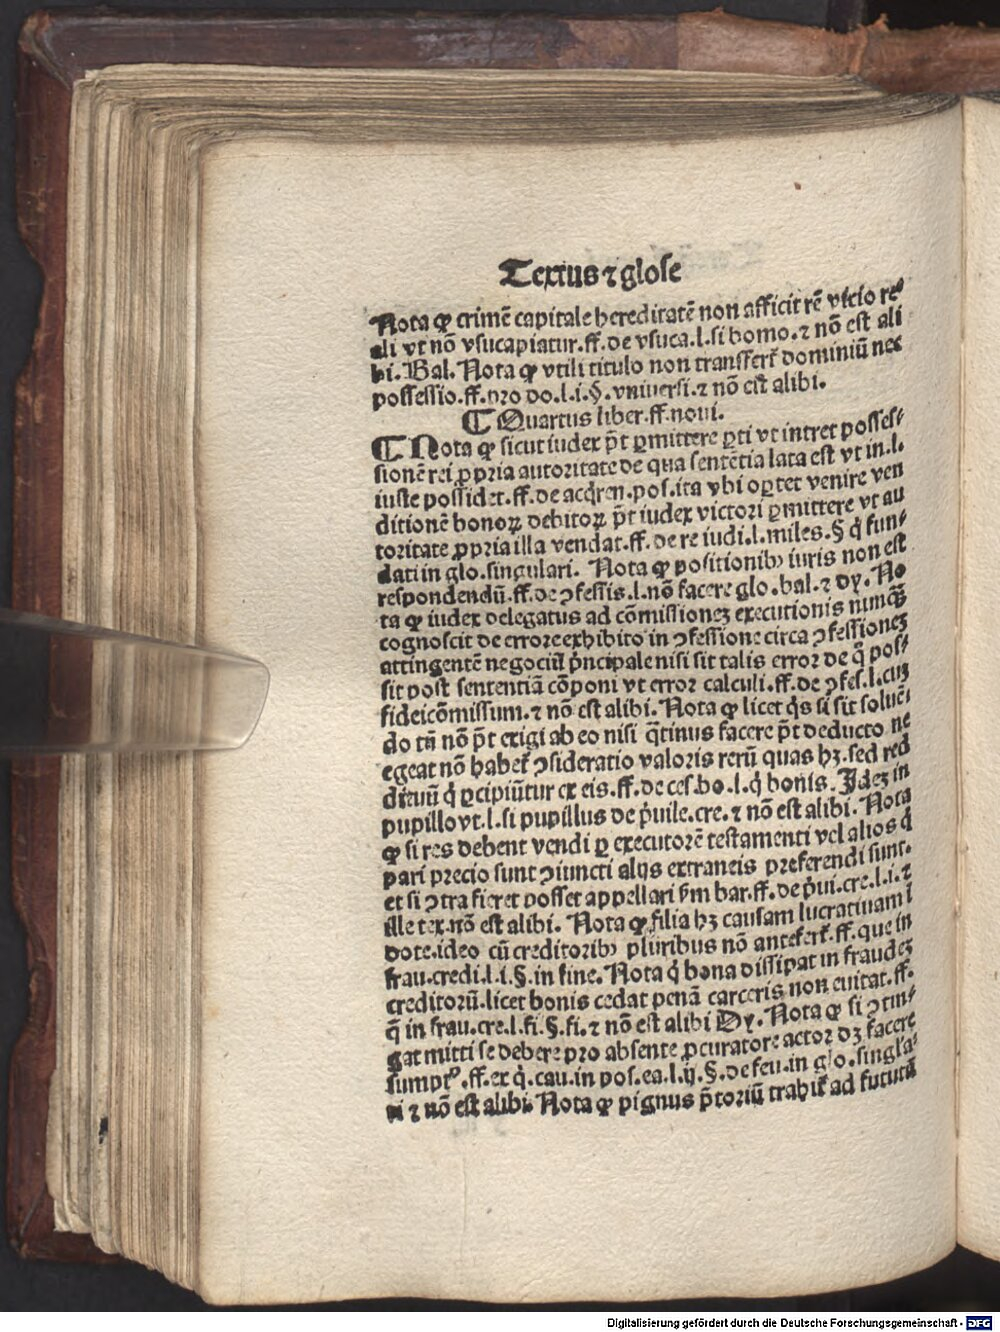 Textus ⁊ glose
Nota ꝙ crimē capitale hereditatē non afficit rē vicio re
ali vt nō vsucapiatur.ff.de vsuca.l.si homo.⁊ nō est ali
bi. Bal. Nota ꝙ vtili titulo non transfert̄ dominiū nec
possessio.ff.pro do.l.i.§.vniuersi.⁊ nō est alibi.
¶ Quartus liber.ff.noui.
¶ Nota ꝙ sicut iudex p̄t ꝑmittere ꝑti vt intret posses⸗
sionē rei ꝓpria autoritate de qua sentētia lata est vt in.l.
iuste possidet.ff.de acq̄ren.pos.ita vbi oꝑtet venire ven
ditionē bonoꝝ debitoꝝ p̄t iudex victori ꝑmittere vt au
toritate ꝓpria illa vendat.ff.de re iudi.l.miles.§ q̇ fun⸗
dati in glo.singulari. Nota ꝙ positionibꝰ iuris non est
respondendū.ff.de ꝯfessis.l.nō facere glo.bal.⁊ Dy. No
ta ꝙ iudex delegatus ad cōmissioneꝫ executionis nunꝙ̄
cognoscit de errore exhibito in ꝯfessione circa ꝯfessioneꝫ
attingentē negociū p̄ncipale nisi sit talis error de q̄ pos⸗
sit post sententiā cōponi vt error calculi.ff.de ꝯfes.l.cuꝫ
fideicōmissum.⁊ nō est alibi. Nota ꝙ licet q̇s si sit soluē⸗
do tn̄ nō p̄t exigi ab eo nisi q̄tinus facere p̄t deducto ne
egeat nō habet̄ ꝯsideratio valoris rerū quas hꝫ.sed red
dituū q̇ ꝑcipiūtur ex eis.ff.de ces.bo.l.q̇ bonis. Ideꝫ in
pupillo vt.l.si pupillus de ṗuile.cre.⁊ nō est alibi. Nota
ꝙ si res debent vendi ꝑ executorē testamenti vel alios q̇
pari precio sunt ꝯiuncti alijs extraneis preferendi sunt.
et si ꝯtra fieret posset appellari ẜm bar.ff.de ṗui.cre.l.i.⁊
ille tex.nō est alibi. Nota ꝙ filia hꝫ causam lucratiuam ī
dote.ideo cū creditoribꝰ pluribus nō antefert̄.ff.que in
frau.credi.l.i.§.in fine. Nota q̇ bona dissipat in fraudeꝫ
creditorū.licet bonis cedat penā carceris non euitat.ff.
q̄ in frau.cre.l.fi.§.fi.⁊ nō est alibi Dy. Nota ꝙ si ꝯtin⸗
gat mitti se debere pro absente ꝓcuratore actor dꝫ facere
sumptꝰ.ff.ex q̇.cau.in pos.ea.l.ij.§.de feu.in glo.singl'a⸗
ri ⁊ nō est alibi. Nota ꝙ pignus p̄toriū trahit̄ ad futurū
Digitalisierung gefördert durch die Deutsche Forschungsgemeinschaft - DFG